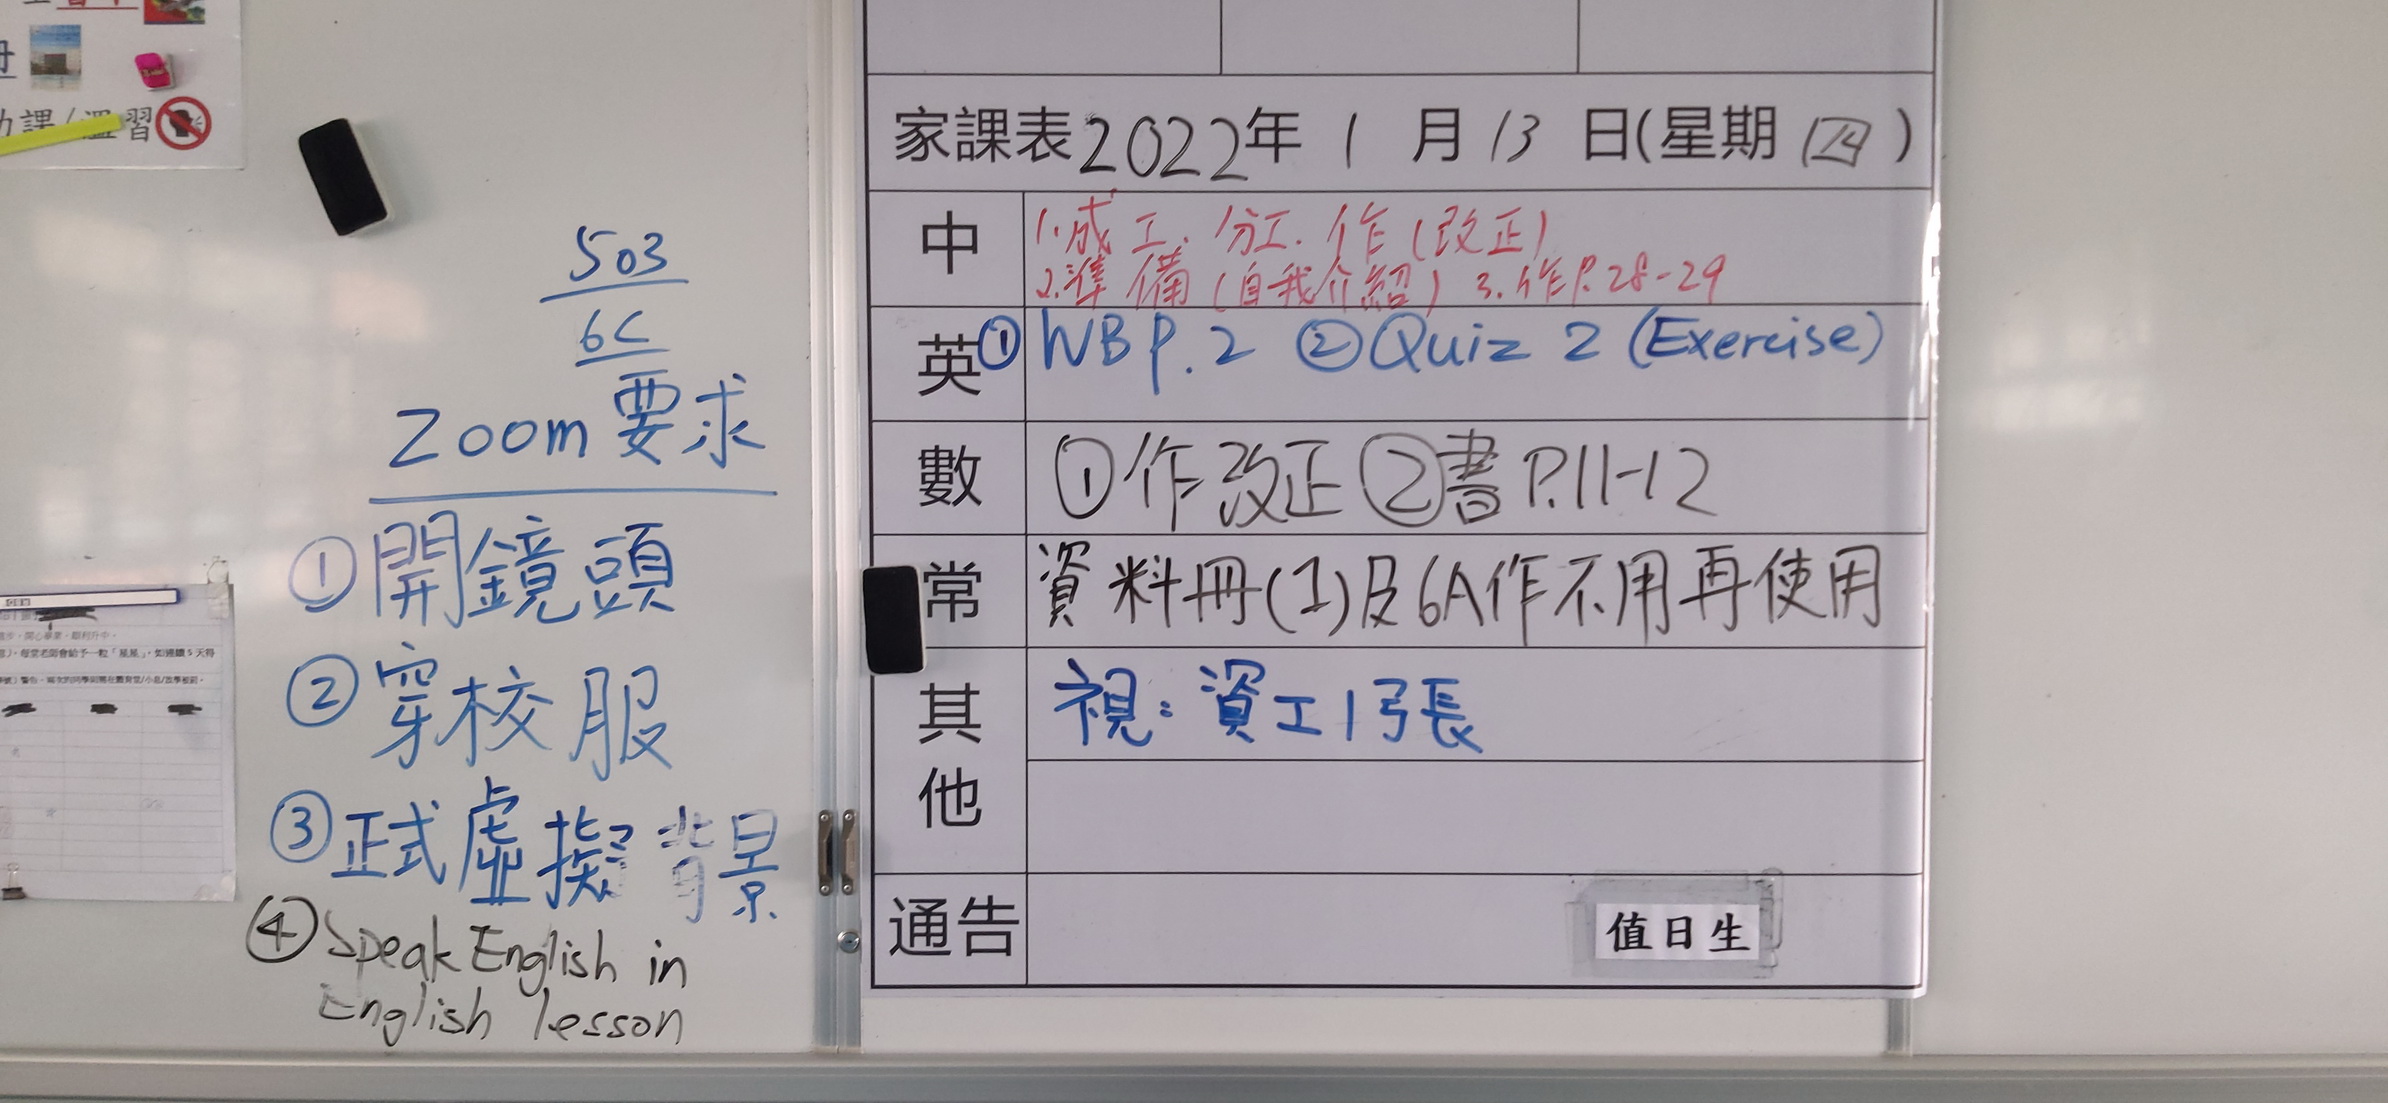 功課/溫習
503
6C
Zoom要求
①開鏡頭
②穿校服
③正式虛擬背景
④Speak English in
English lesson
家課表2022年1月13日(星期四)
中
1.成工、分工、作(改正)
2.準備(自我介紹) 3.作P.28-29
英
①WB P.2 ②Quiz 2 (Exercise)
數
①作改正②書P.11-12
常
資料冊(1)及6A作不用再使用
其他
視:資工1張
通告
值日生